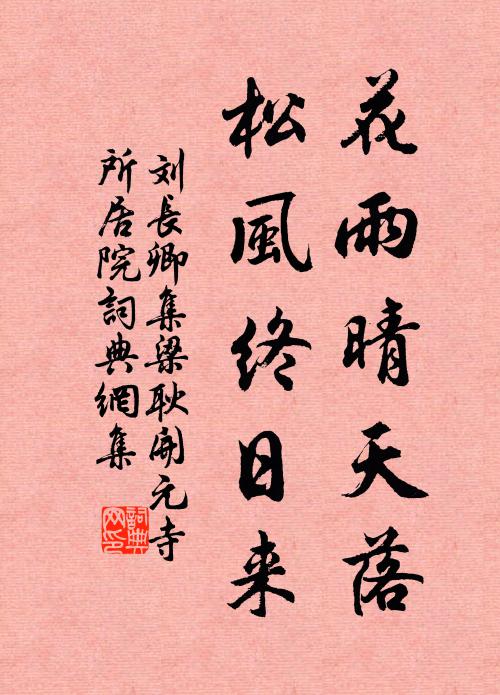 花雨晴天落
松風终日来
刘長卿集梁耿開元寺
所居院詞典網集
詞典網印